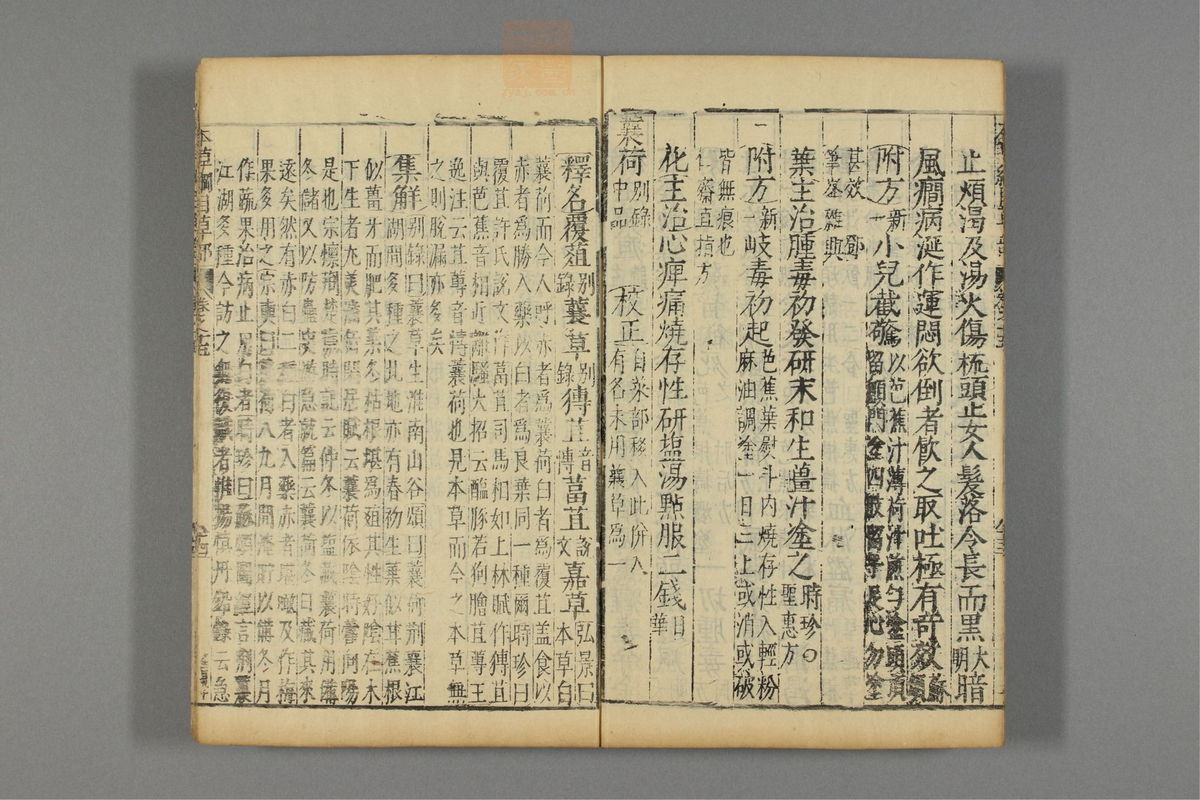 止煩渴及湯火傷梳頭止女人髮落令長而黑大明暗
風癎病涎作運悶欲倒者飲之取吐極有奇效蘇頌
附方新一小兒截驚以芭蕉汁薄荷汁煎勻塗頭頂留顖門塗四肢留手足心勿塗
甚效鄧筆峯雜興
葉主治腫毒初發研末和生薑汁塗之時珍○聖惠方
附方新一岐毒初起芭蕉葉熨斗內燒存性入輕粉麻油調塗一日三上或消或破
皆無痕也仁齋直指方
花主治心痺痛燒存性研塩湯點服二錢日華
蘘荷別錄中品校正自菜部移入此併入有名未用蘘草爲一
釋名覆葅別錄蘘草別錄猼苴音博葍苴說文嘉草弘景曰本草白
蘘荷而今人呼赤者爲蘘荷白者爲覆苴蓋食以
赤者爲勝入藥以白者爲良葉同一種爾時珍曰
覆苴許氏說文作葍苴司馬相如上林賦作猼苴
與芭蕉音相近離騷大招云醢豚若狗膾苴蓴王
逸注云苴蓴音博蘘荷也見本草而今之本草無
之則脫漏亦多矣
集解別錄曰蘘草生淮南山谷頌曰蘘荷荆襄江
湖間多種之北地亦有春初生葉似甘蕉根
似薑牙而肥其葉冬枯根堪爲葅其性好陰在木
下生者尤美潘岳閑居賦云蘘荷依陰時藿向陽
是也宗懔荆楚歲時記云仲冬以鹽藏蘘荷用備
冬儲又以防蠱史游急就篇云蘘荷冬日藏其來
遠矣然有赤白二種白者入藥赤者堪啖及作梅
果多用之宗奭曰蘘荷八九月間淹貯以備冬月
作蔬果治病止用白者時珍曰蘇頌圖經言荆襄
江湖多種今訪之無復識者惟楊慎丹鉛錄云急
本草綱目草部 卷之十五